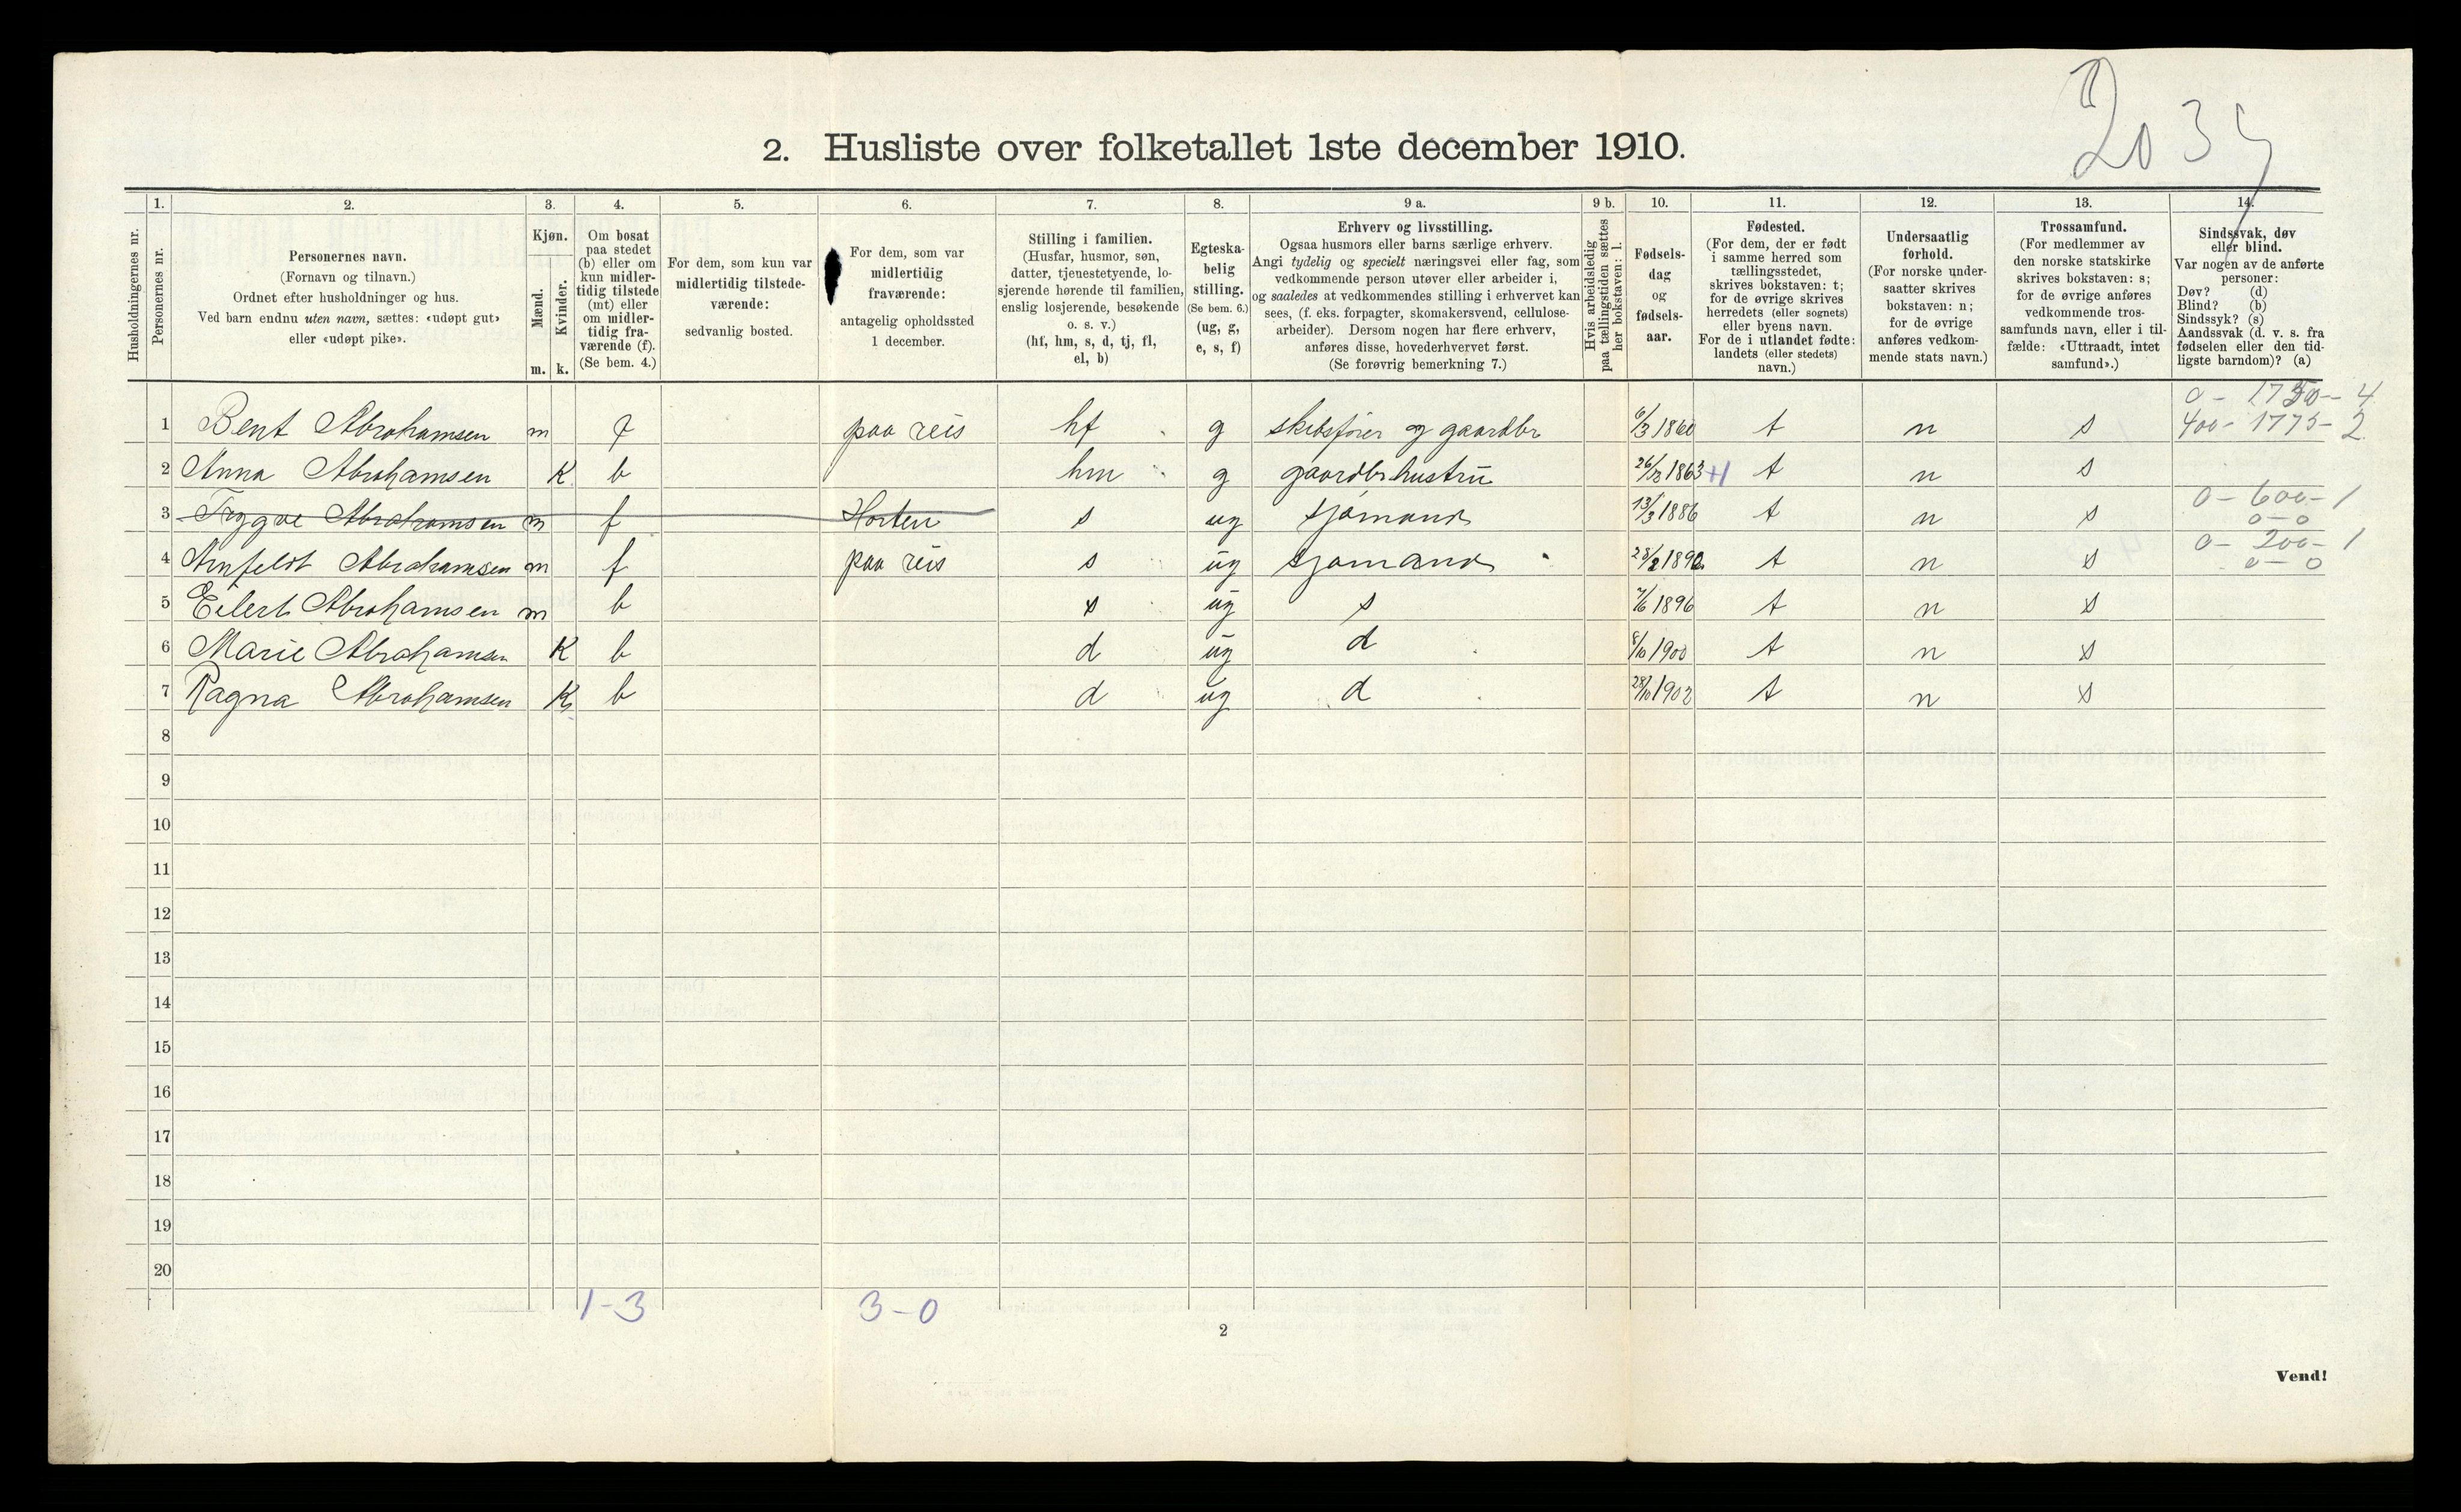 2034
2. Husliste over folketallet 1ste december 1910.
Husholdningernes nr.
1.
Personernes nr.
2.
Personernes navn.
(Fornavn og tilnavn.)
Ordnet efter husholdninger og hus.
Ved barn endnu uten navn, sættes: «udøpt gut»
eller «udøpt pike».
3.
Kjøn.
Mænd.
Kvinder.
m. k.
4.
Om bosat
paa stedet
(b) eller om
kun midler-
tidig tilstede
(mt) eller
om midler-
tidig fra-
værende (f).
(Se bem. 4.)
5.
For dem, som kun var
midlertidig tilstede-
værende:
sedvanlig bosted.
6.
For dem, som var
midlertidig
fraværende:
antagelig opholdssted
1 december.
7.
Stilling i familien.
(Husfar, husmor, søn,
datter, tjenestetyende, lo-
sjerende hørende til familien,
enslig losjerende, besøkende
o. s. v.)
(hf, hm, s, d, tj, fl,
el, b)
8.
Egteska-
belig
stilling.
(Se bem. 6.)
(ug, g,
e, s, f)
9 a.
Erhverv og livsstilling.
Ogsaa husmors eller barns særlige erhverv.
Angi tydelig og specielt næringsvei eller fag, som
vedkommende person utøver eller arbeider i,
og saaledes at vedkommendes stilling i erhvervet kan
sees, (f. eks. forpagter, skomakersvend, cellulose-
arbeider). Dersom nogen har flere erhverv,
anføres disse, hovederhvervet først.
(Se forøvrig bemerkning 7.)
9 b.
Hvis arbeidsledig
paa tællingstiden sættes
her bokstaven: l.
10.
Fødsels-
dag
og
fødsels-
aar.
11.
Fødested.
(For dem, der er født
i samme herred som
tællingsstedet,
skrives bokstaven: t;
for de øvrige skrives
herredets (eller sognets)
eller byens navn.
For de i utlandet fødte:
landets (eller stedets)
navn.)
12.
Undersaatlig
forhold.
(For norske under-
saatter skrives
bokstaven: n;
for de øvrige
anføres vedkom-
mende stats navn.)
13.
Trossamfund.
(For medlemmer av
den norske statskirke
skrives bokstaven: s;
for de øvrige anføres
vedkommende tros-
samfunds navn, eller i til-
fælde: «Uttraadt, intet
samfund».)
14.
Sindssvak, døv
eller blind.
Var nogen av de anførte
personer:
Døv? (d)
Blind? (b)
Sindssyk? (s)
Aandssvak (d. v. s. fra
fødselen eller den tid-
ligste barndom)? (a)
0 - 1750 - 4
1 Bent Abrahamsen m f paa reis hf g skibsfører og gaardbr 6/3 1860 t n s 400 - 1775 - 2
2 Anna Abrahamsen K b hm g gaardbr hustru 26/12 1863 t n s
3 Trygve Abrahamsen m f Horten s ug sjømand 13/3 1886 t n s 0 - 600 - 1
0 - 0
4 Arnfeldt Abrahamsen m f paa reis s ug sjømand 28/2 1892 t n s 0 - 200 - 1
0 - 0
5 Eilert Abrahamsen m b s ug s 7/6 1896 t n s
6 Marie Abrahamsen K b d ug d 8/10 1900 t n s
7 Ragna Abrahamsen K b d ug d 28/10 1902 t n s
8
9
10
11
12
13
14
15
16
17
18
19
20
1 - 3 3 - 0
2
Vend!